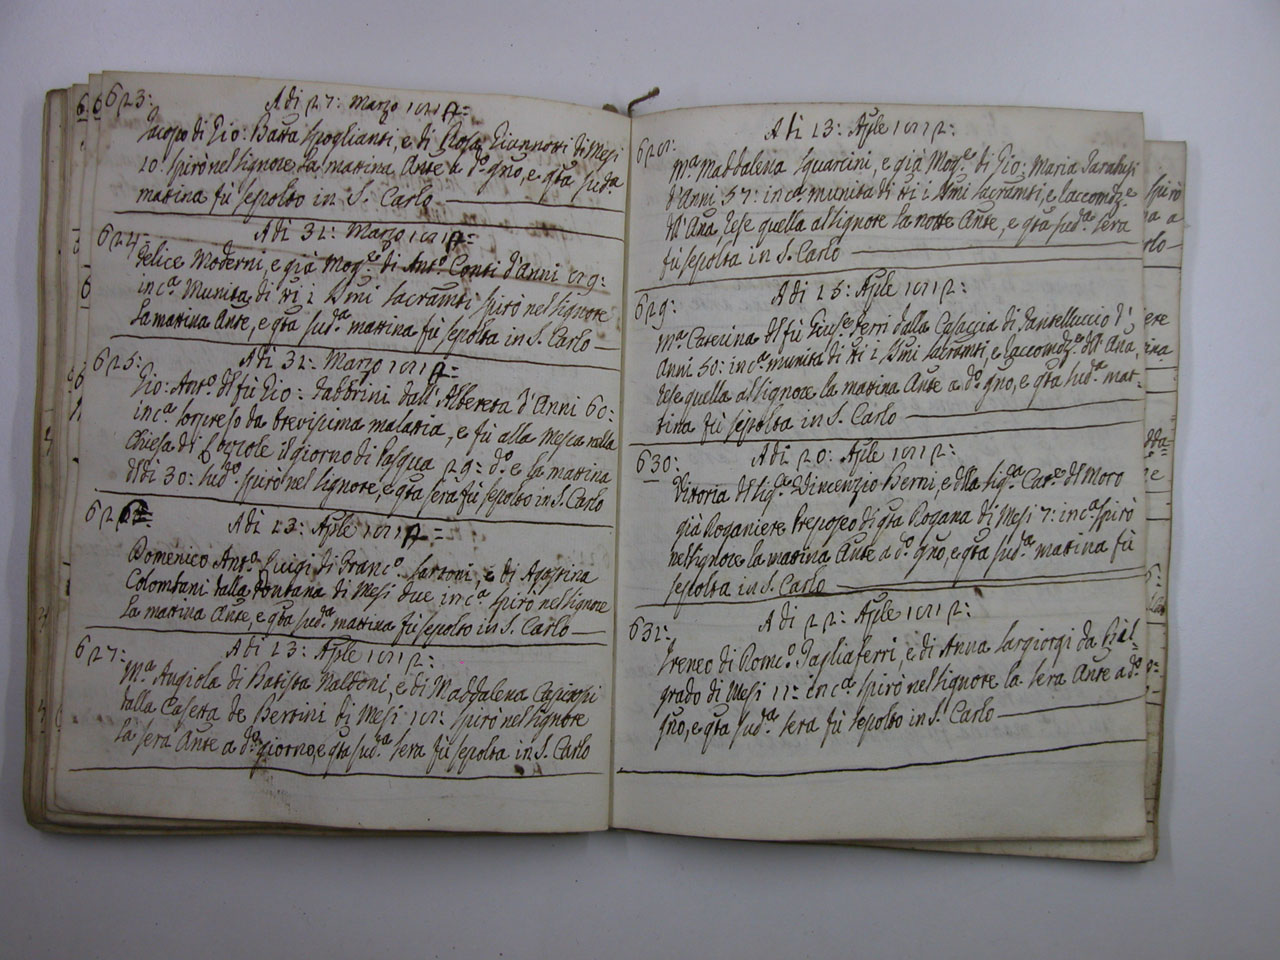 623:
A di 27: Marzo
Jacopo di Gio: Batta Spoglianti, e di Rosa Giannoni di Mesi
10: spirò nel Signore la mattina Ante a do. gno, e qta sud.a
mattina fù sepolto in S. Carlo
624:
A di 31: Marzo
Felice Moderni, e già Mog.e di Ant.o Conti d'Anni
in c.a Munita di tti i SSmi Sacramti spirò nel Signore
la mattina Ante, e qta sud.a mattina fù sepolta in S. Carlo
625:
A di 31: Marzo
Gio: Ant.o del fù Gio: Fabbrini dall'Albereta d'Anni 60:
in c.a sorpreso da brevissima malatia, e fù alla Messa nella
Chiesa di il giorno di Pasqua 29: d.o e la mattina
di 30: sud.o spirò nel Signore, e qta sera fù sepolto in S. Carlo
626
A di 13: Aple
Domenico Ant.o Luigi di Franc.o Sartoni, e di Agostina
Colombani dalla Fontana di Mesi due in c.a spirò nel Signore
la mattina Ante, e qta sud.a mattina fù sepolto in S. Carlo
627:
A di 13: Aple
M.a Angiola di Batista Naldoni, e di Maddalena
dalla Casetta de Bertini di Mesi spirò nel Signore
la sera Ante a d.o giorno, e qta sud.a sera fù sepolta in S. Carlo
628:
A di 13: Aple
M.a Maddalena Squarcini, e già Mog.e di Gio: Maria
d'Anni 57: in c.a munita di tti i SSmi Sacramti, e Raccomdz.e
dll'Ana, rese quella al Signore la notte Ante, e qta sud.a sera
fù sepolta in S. Carlo
629:
A di 15: Aple
M.a Caterina del fù Giuse. Ferri dalla Casaccia di Santelluccio d'
Anni 50: in c.a munita di tti i SSmi Sacramti, e Raccomdz.e dll'Ana,
rese quella al Signore la mattina Ante a d.o gno, e qta sud.a mat-
tina fù sepolta in S. Carlo
630:
A di 20: Aple
Vittoria del Sig.e Vincenzio Berni, e della Sig.a Cat.a del Moro
già Doganiere Preposto di qta Dogana di Mesi 7: in c.a spirò
nel Signore la mattina Ante a d.o gno, e qta sud.a mattina fù
sepolta in S. Carlo
631:
A di 22: Aple
Ireneo di Dom.co Tagliaferri, e di Anna Sargiorgi da
grado di Mesi 11: in c.a spirò nel Signore la sera Ante a d.o
gno, e qta sud.a sera fù sepolto in S. Carlo